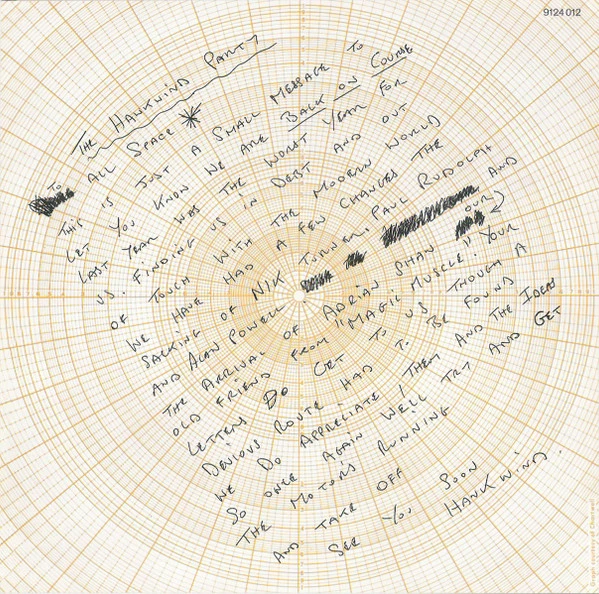 9124 012
THE HAWKWIND PARTY
TO ALL SPACE
THIS IS JUST A SMALL MESSAGE TO
LET YOU KNOW WE ARE BACK ON COURSE
LAST YEAR WAS THE WORST YEAR FOR
US. FINDING US IN DEBT AND OUT
OF TOUCH WITH THE MODERN WORLD
WE HAVE HAD A FEW CHANGES THE
SACKING OF NIK TURNER, PAUL RUDOLPH
AND ALAN POWELL AND
THE ARRIVAL OF ADRIAN SHAW OUR
OLD FRIEND FROM "MAGIC MUSCLE". YOUR
LETTERS DO GET TO US THOUGH A
DEVIOUS ROUTE HAD TO BE FOUND
WE DO APPRECIATE THEM AND THE IDEAS
SO ONCE AGAIN WE'LL TRY AND GET
THE MOTORS RUNNING
AND TAKE OFF
SEE YOU SOON
HAWKWIND.